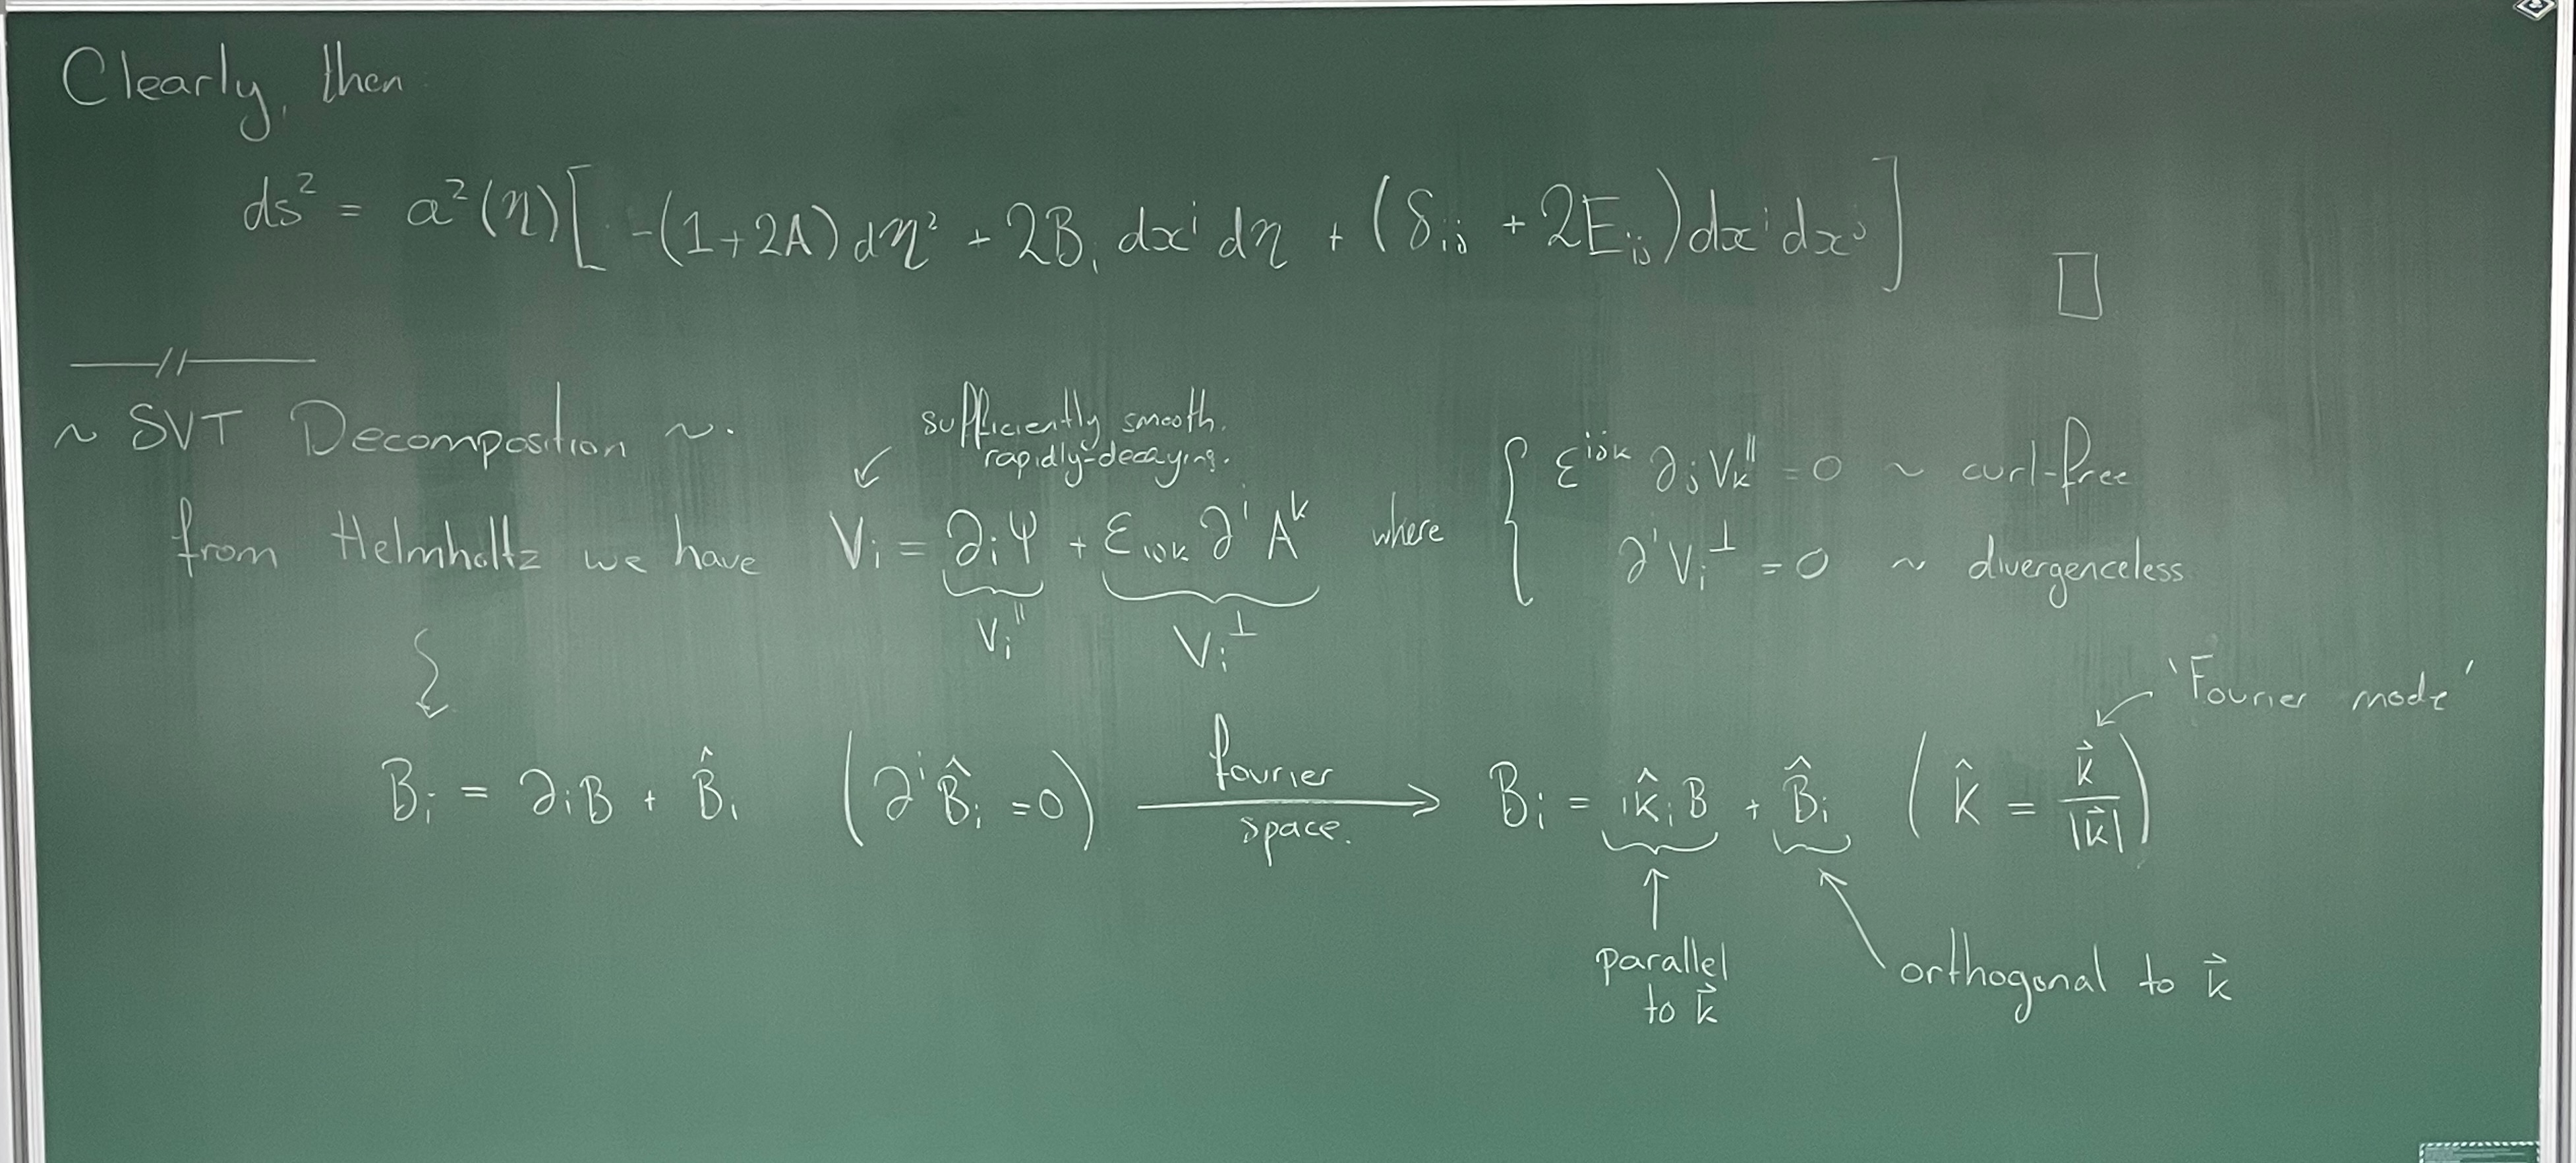 Clearly, then
ds² = a²(η)[ -(1+2A)dη² + 2Bᵢ dxⁱ dη + (δᵢⱼ + 2Eᵢⱼ)dxⁱdxʲ ] □
~ SVT Decomposition ~.
sufficiently smooth.
rapidly-decaying.
from Helmholtz we have Vᵢ = ∂ᵢψ + εᵢⱼₖ ∂ʲ Aᵏ where { εⁱʲᵏ ∂ⱼVₖ^∥ = 0 ~ curl-free
∂ⁱVᵢ^⊥ = 0 ~ divergenceless
Vᵢ^∥ Vᵢ^⊥
'Fourier mode'
Bᵢ = ∂ᵢB + B̂ᵢ (∂ⁱB̂ᵢ = 0) fourier space. ⟶ Bᵢ = ik̂ᵢB + B̂ᵢ (k̂ = k⃗/|k⃗|)
parallel to k⃗
orthogonal to k⃗